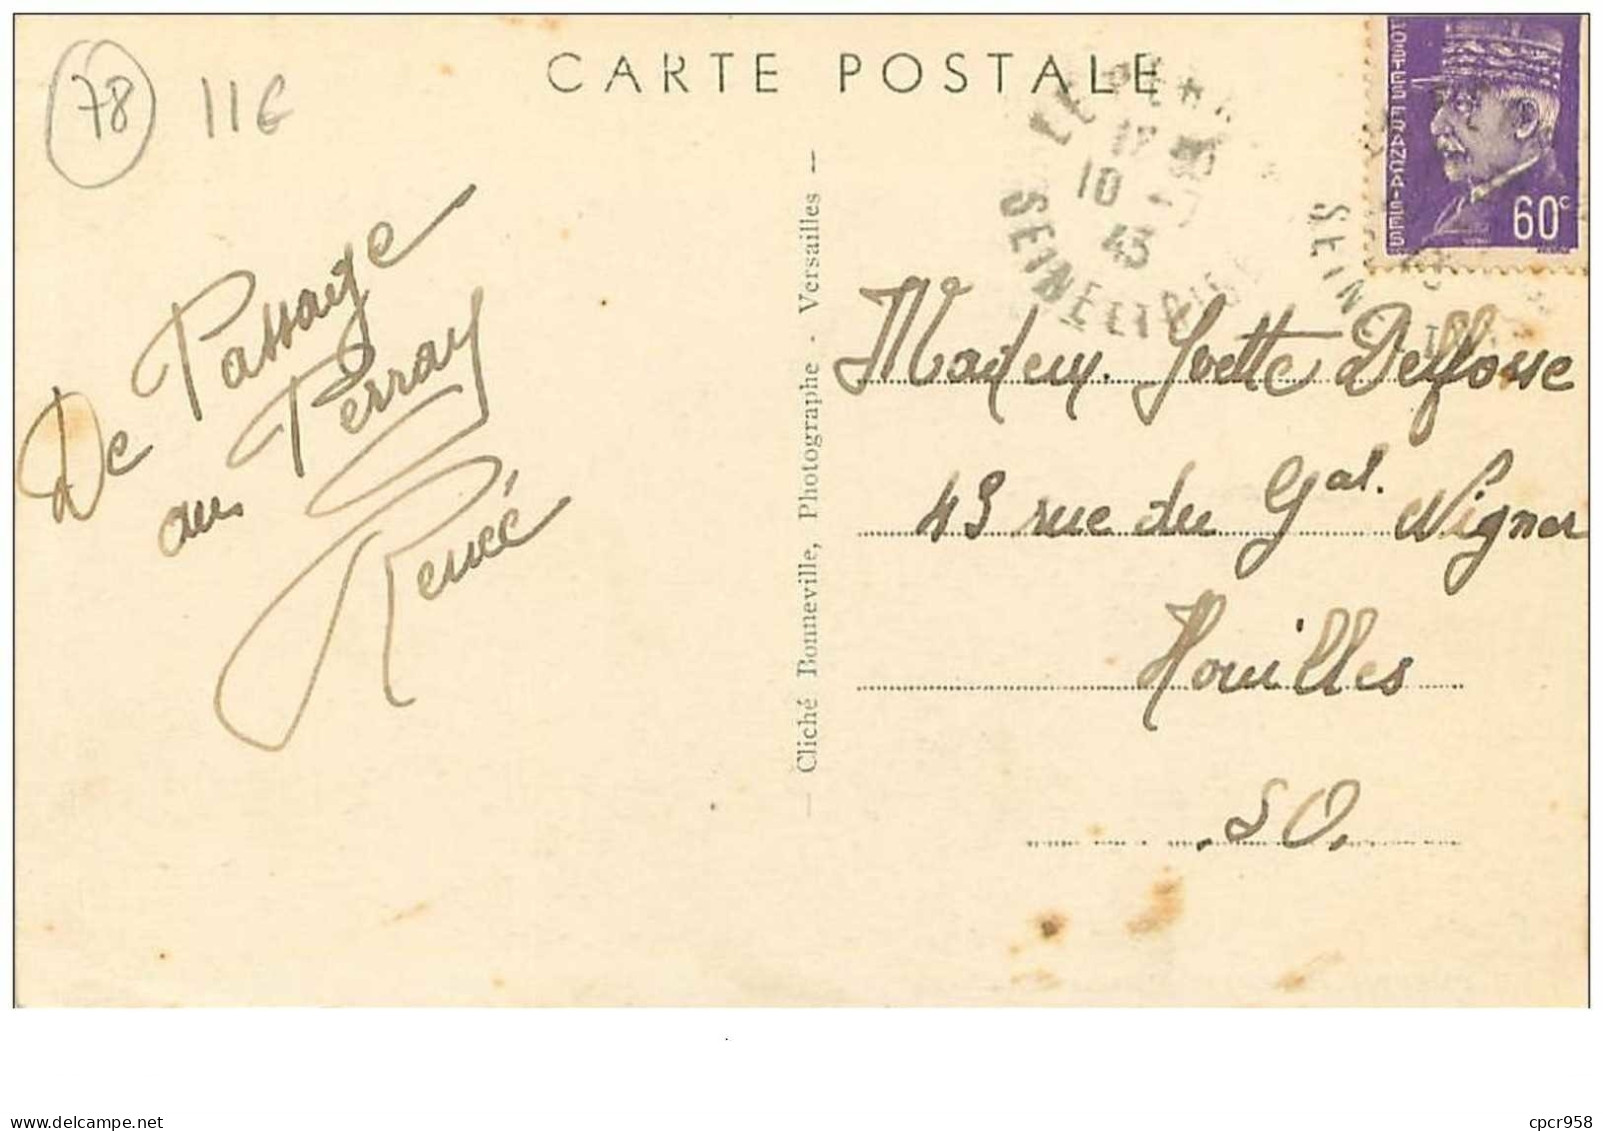 78
11€
CARTE POSTALE
POSTES FRANÇAISES
60c
LE PERR
10
43
SEINE ET OISE
SEINE
De Passage
au Perray
Renée
Cliché Bonneville, Photographe - Versailles -
Yvette Deflosse
43 rue du Gal.
Houilles
S O.
www.delcampe.net
cpcr958